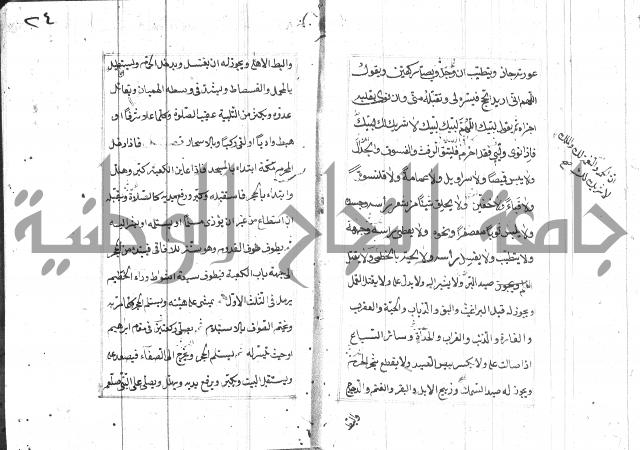 عورته جاز ويتطيب ان وجد ويصلي ركعتين ويقول
اللهم اني اريد الحج فيسره لي وتقبله مني وان نوى بقلبه
اجزاه ثم يقول لبيك اللهم لبيك لبيك لا شريك لك لبيك
فاذا نوى ولبى فقد احرم فليتق الرفث والفسوق والجدال
ولا يلبس قميصا ولا سراويل ولا عمامة ولا قلنسوة
ولا قباء ولا خفين ولا يحلق شيئا من شعر راسه وجسده
ولا يلبس ثوبا معصفرا ونحوه ولا يغطي راسه ولا وجهه
ولا يتطيب ولا يغسل راسه ولا لحيته بالخطمي ولا يقتل
صيد البر ولا يشير اليه ولا يدل عليه ولا يقتل القمل
ويجوز له قتل البراغيث والبق والذباب والحية والعقرب
والفارة والذئب والغراب والحداة وسائر السباع
اذا صالت عليه ولا يكسر بيض الصيد ولا يقطع شجر الحرم
ويجوز له صيد السمك وذبح الابل والبقر والغنم والدجاج
والبط
ان الحمد والنعمة لك والملك
لا شريك لك صح
٢٤
والبط الاهلي ويجوز له ان يغتسل ويدخل الحمام ويستظل
بالمحمل والفسطاط ويشد في وسطه الهميان ويقاتل
عدوه ويكثر من التلبية عقيب الصلوة وكلما علا شرفا او
هبط واديا او لقي ركبا وبالاسحار فاذا دخل
المحرم مكة ابتداء بالمسجد فاذا عاين الكعبة كبر وهلل
وابتداء بالحجر فاستقبله وكبر ورفع يديه كالصلوة ويقبله
ان استطاع من غير ان يوذي مسلما او يستلمه او يشير اليه
ثم يطوف طواف القدوم وهو سنة للافاقي فيبتدئ من الحجر
الى جهة باب الكعبة فيطوف سبعة اشواط وراء الحطيم
يرمل في الثلث الاول ثم يمشي على هينته ويستلم الحجر كلما مر به
ويختم الطواف بالاستلام ثم يصلي ركعتين في مقام ابرهيم
او حيث تيسر له ثم يستلم الحجر ويخرج الى الصفاء فيصعد عليه
ويستقبل البيت ويكبر ويرفع يديه ويهلل ويصلي على النبي صلعم
جامعة النجاح الوطنية